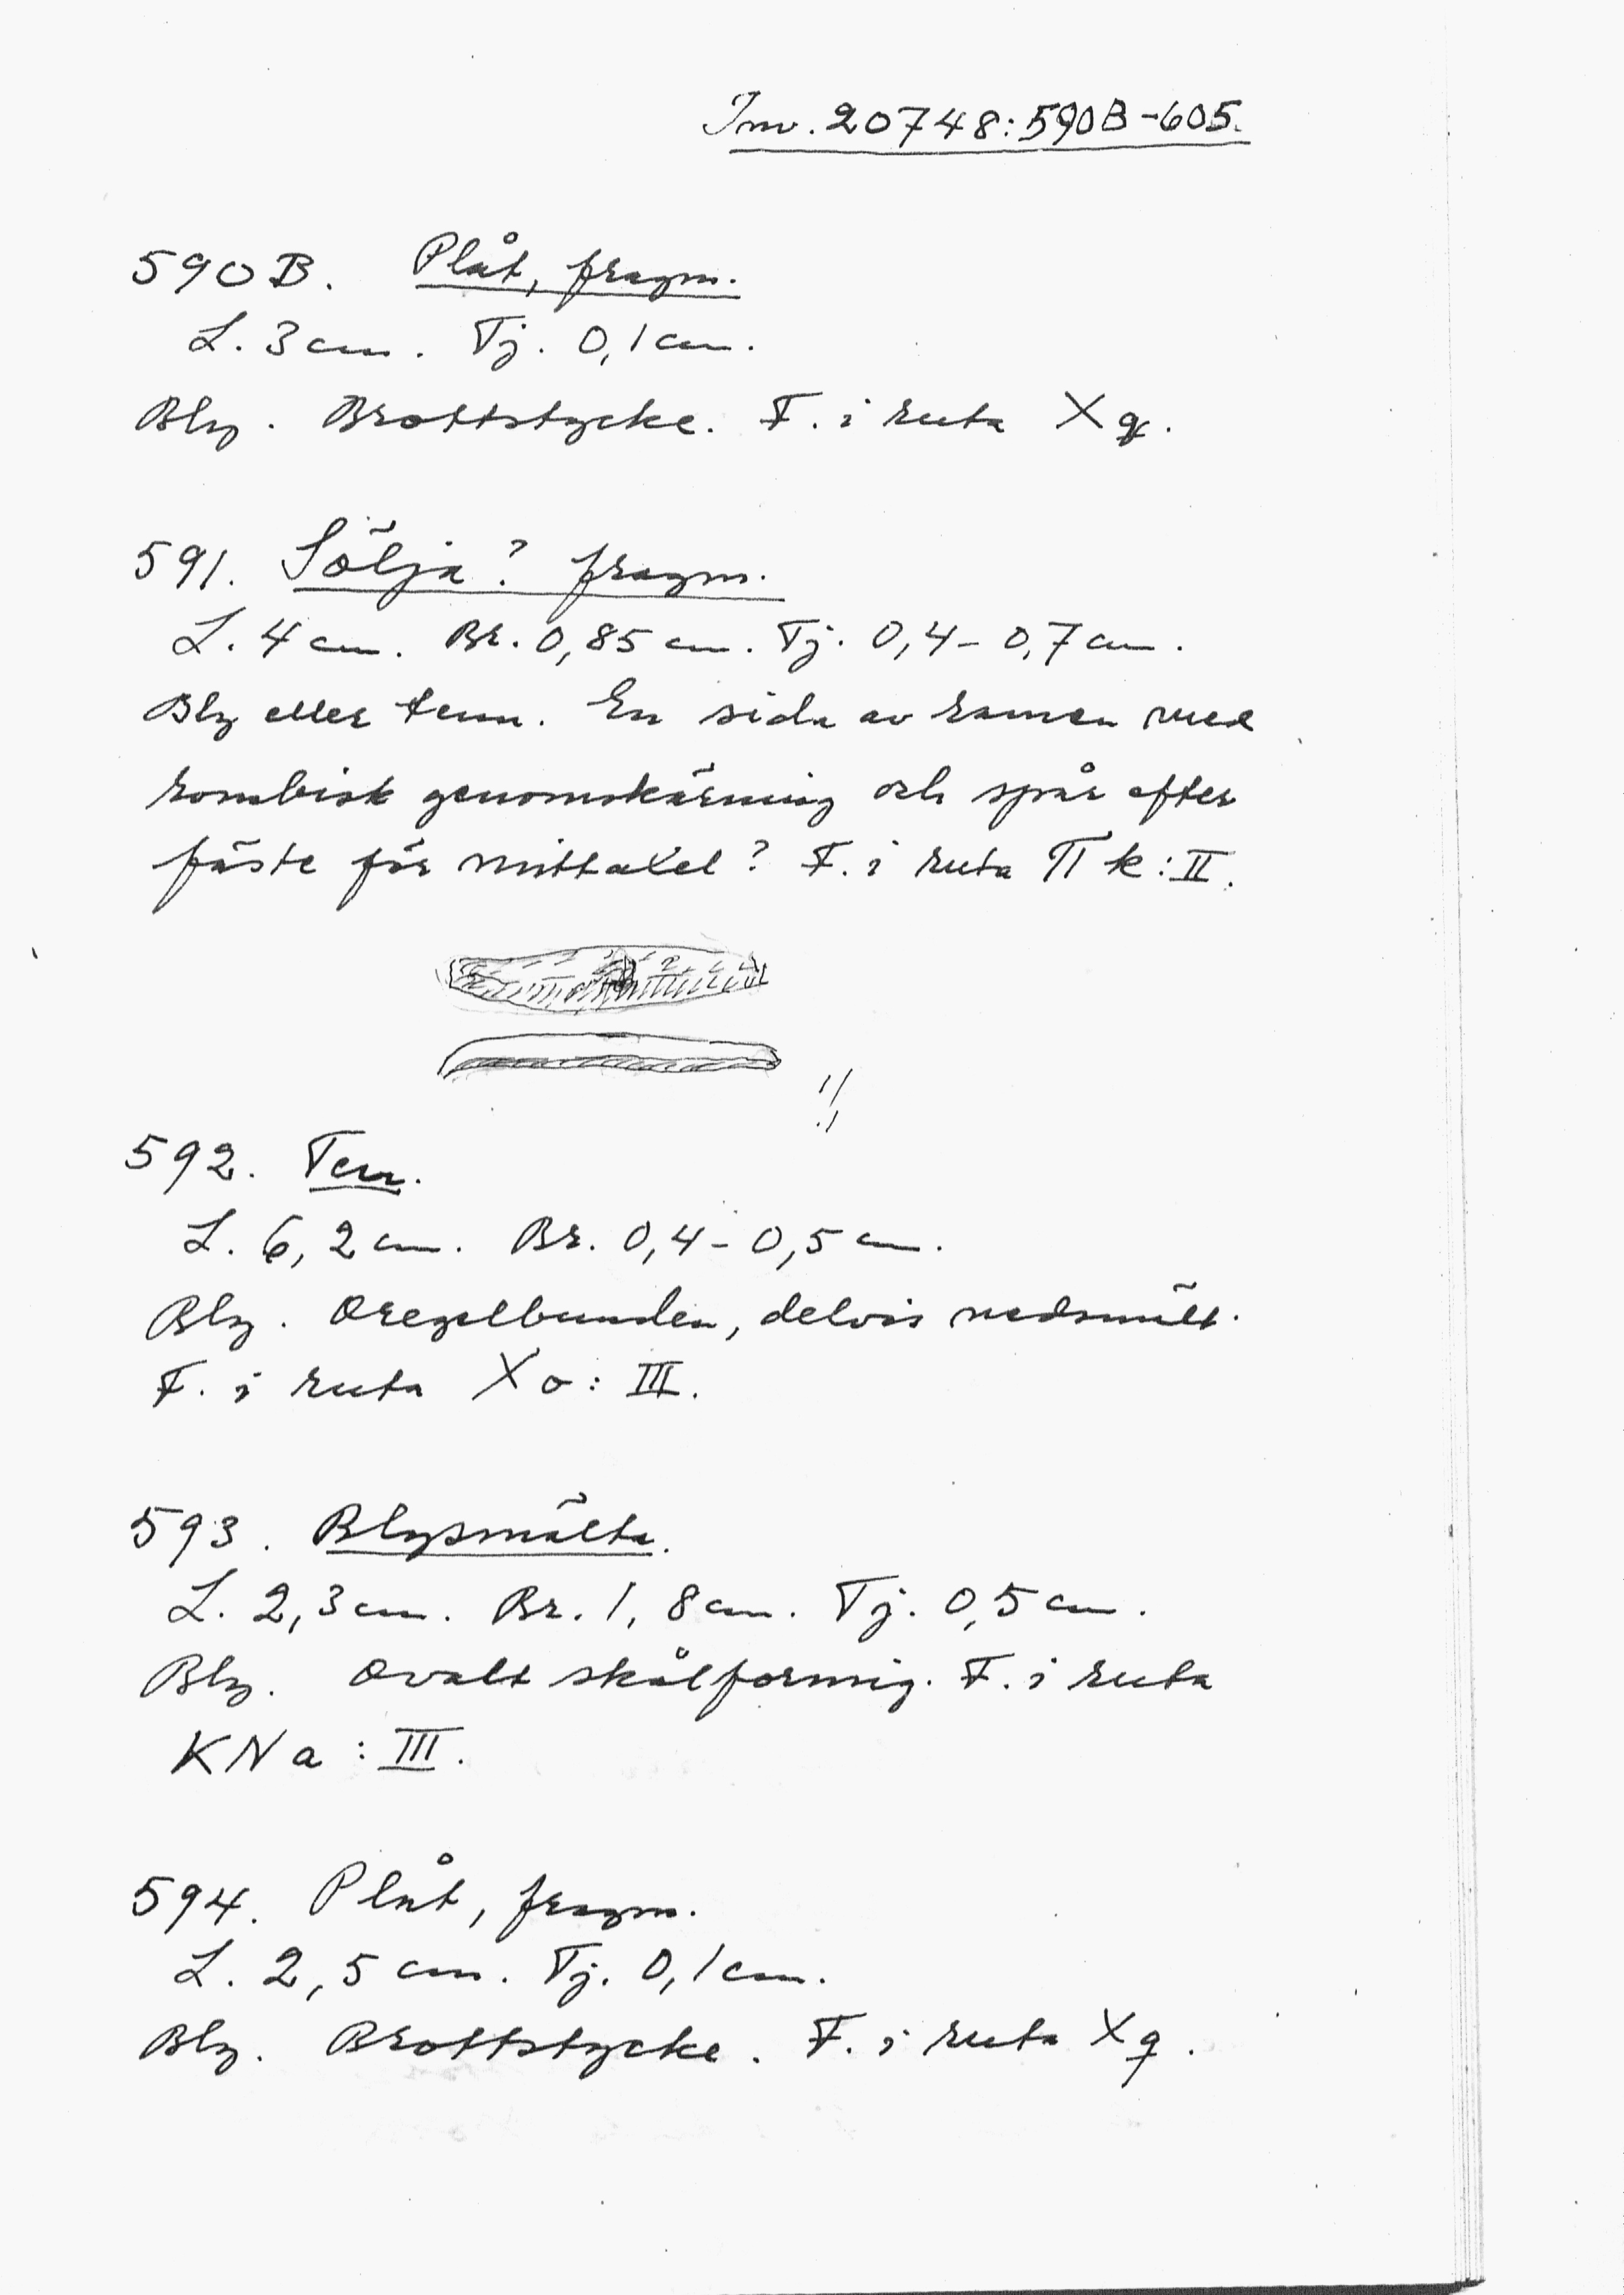 Inv. 20748:590B-605.
590B. Plåt, fragm.
L. 3 cm. Tj. 0,1 cm.
Bly. Brottstycke. F. i ruta X q.
591. Sölja? fragm.
L. 4 cm. Br. 0,85 cm. Tj. 0,4-0,7 cm.
Bly eller tenn. En sida av ramen med
rombisk genomskärning och spår efter
fäste för mittaxel? F. i ruta Π k:II.
!!
592. Ten.
L. 6,2 cm. Br. 0,4-0,5 cm.
Bly. Oregelbunden, delvis nedsmält.
F. i ruta X o: III.
593. Blysmälta.
L. 2,3 cm. Br. 1,8 cm. Tj. 0,5 cm.
Bly. Ovalt skålformig. F. i ruta
KN a : III.
594. Plåt, fragm.
L. 2,5 cm. Tj. 0,1 cm.
Bly. Brottstycke. F. i ruta X q.